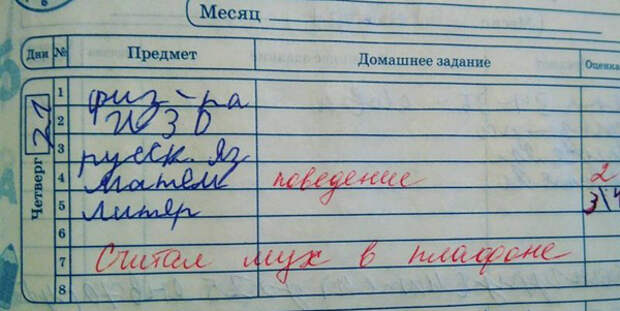 Месяц
Дни № Предмет Домашнее задание Оценка
Четверг 21
1 физ-ра
2 ИЗО
3 русск. яз
4 матем поведение 2
5 литер 3\4
6
7 Считал мух в плафоне
8